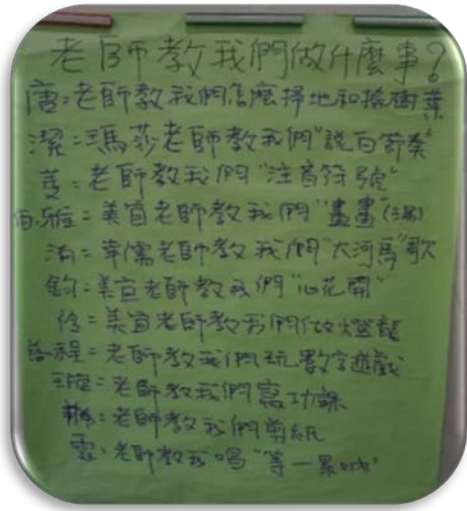 老師教我們做什麼事?
唐:老師教我們怎麼掃地和撿樹葉
潔:瑪莎老師教我們"說白
老師教我們"注音符號"
雅:美宜老師教我們"畫畫"
老師教我們"大河馬"歌
鈞:美宜老師教我們"心花開"
伶:美宜老師教我們做燈籠
程:老師教我們玩數字遊戲
老師教我們寫功課
老師教我們剪紙
老師教我唱"等一